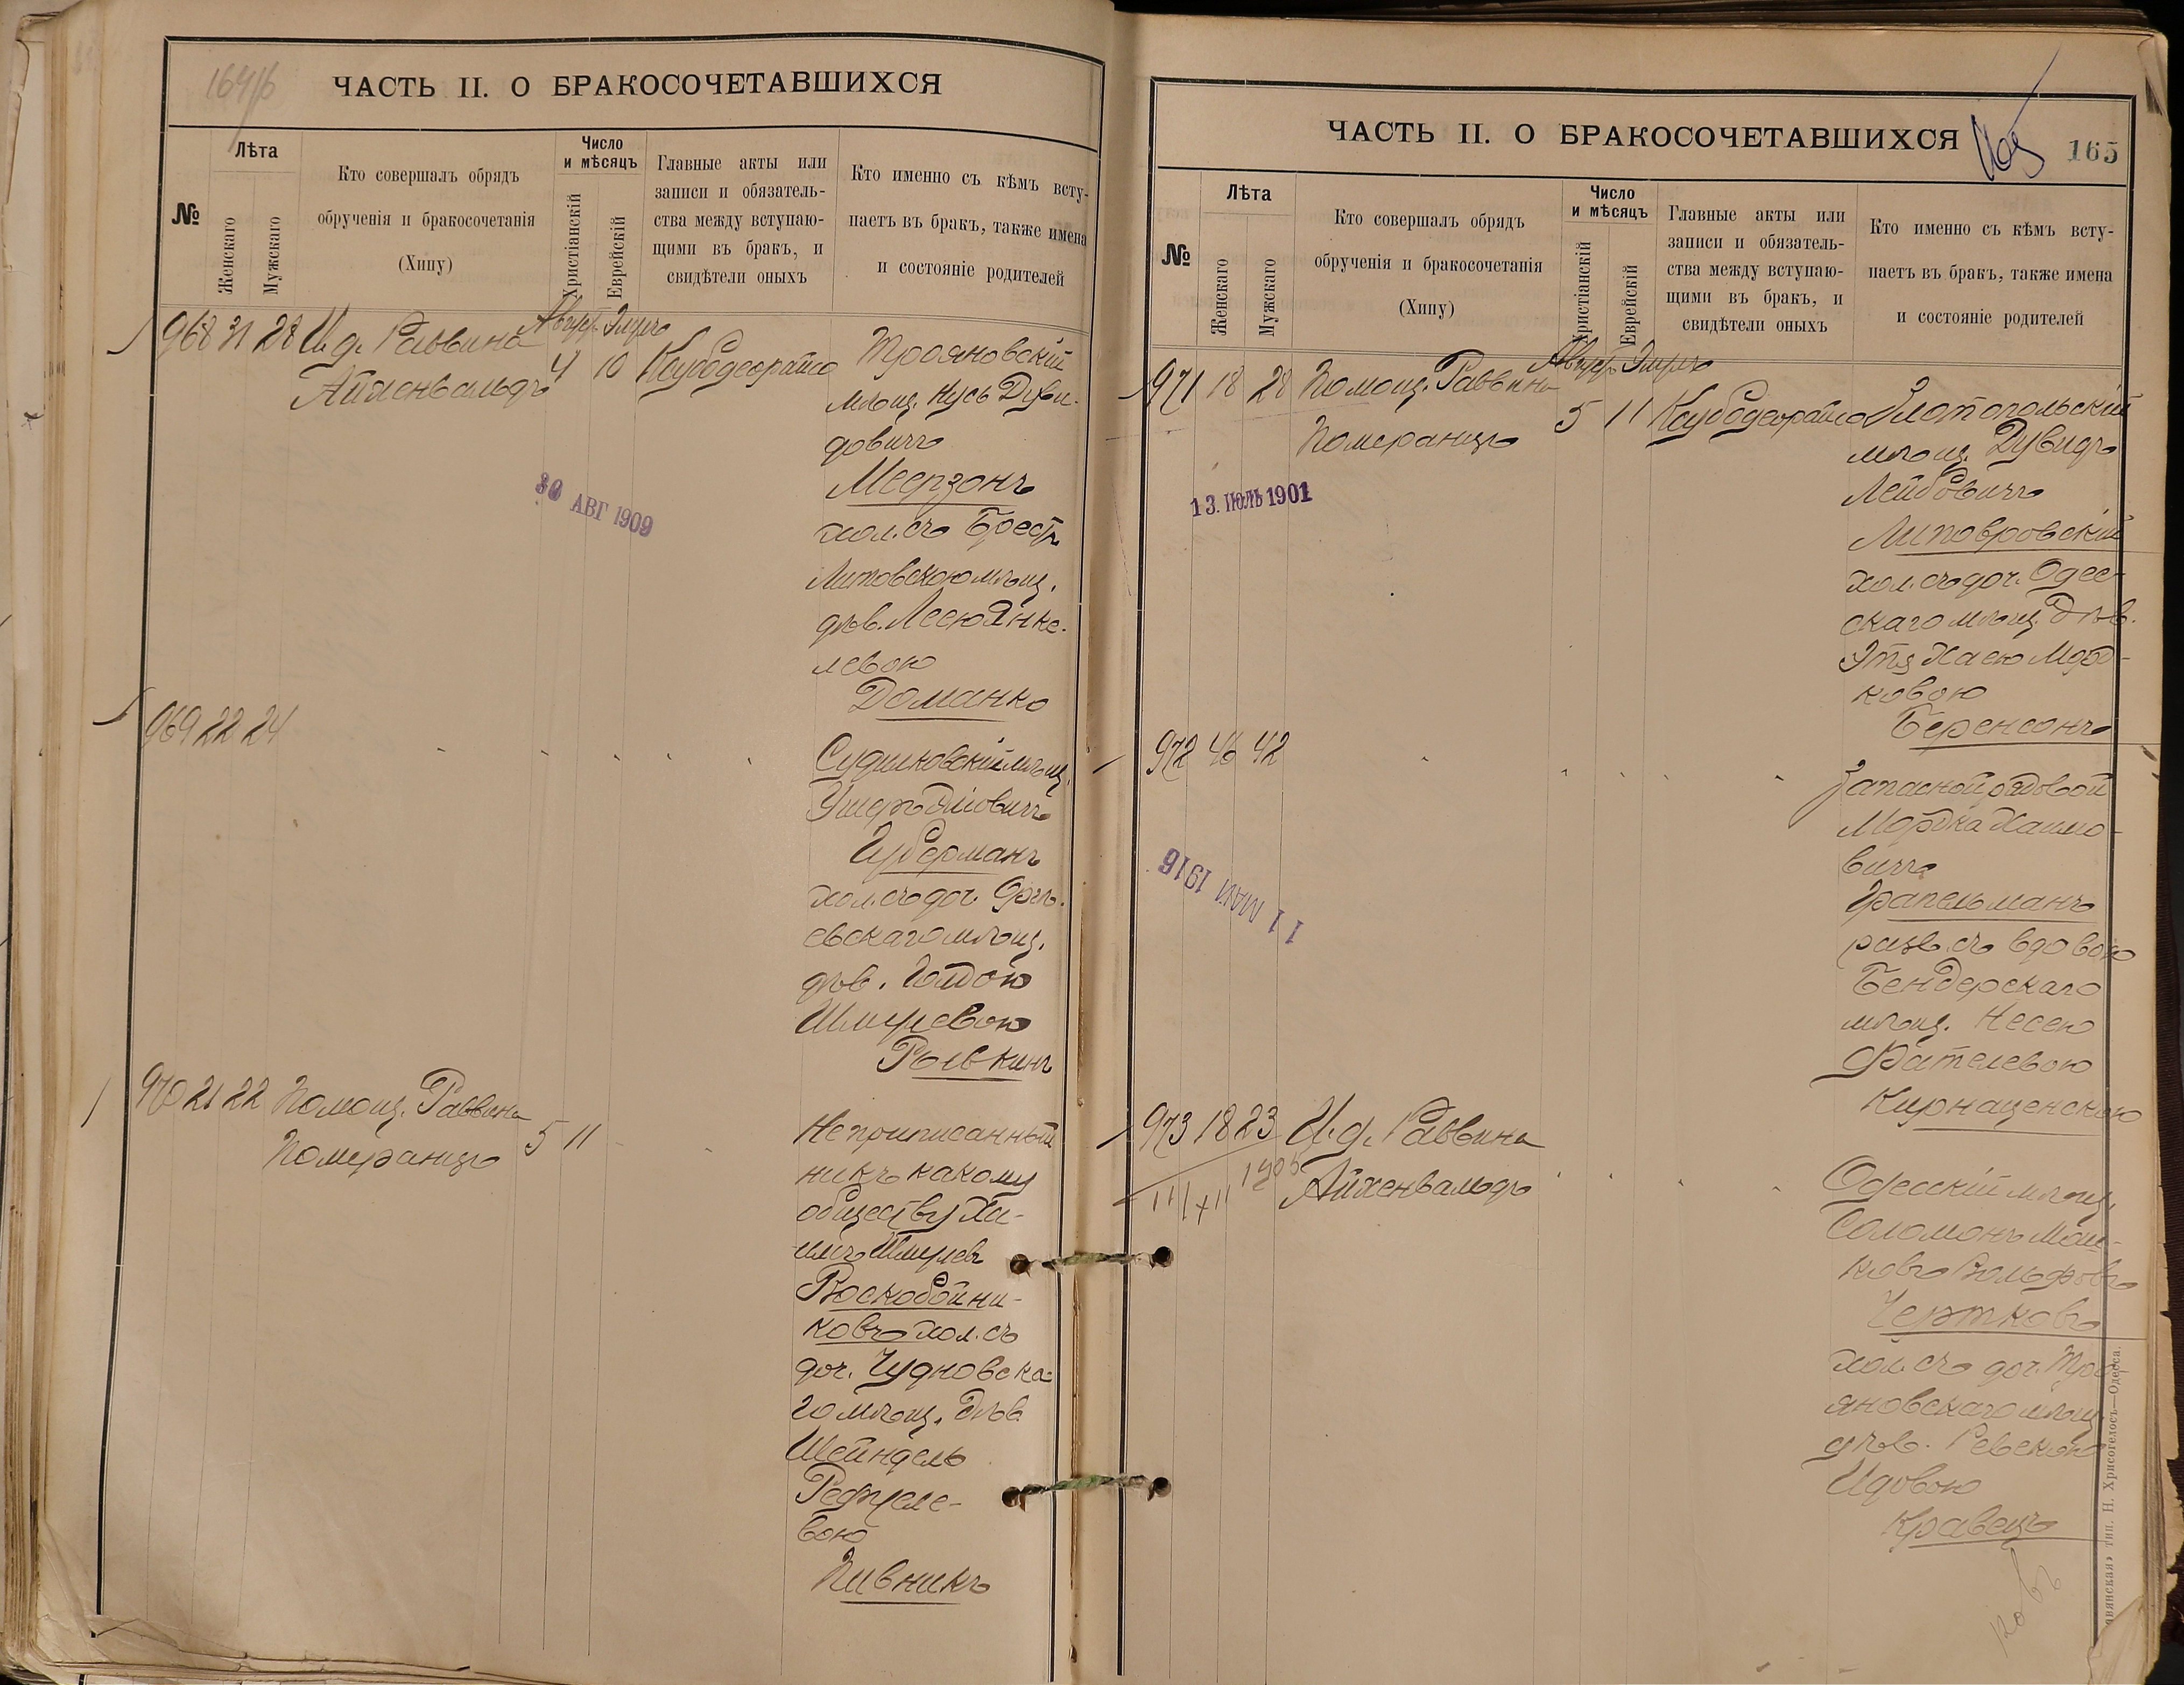 ЧАСТЬ II. О БРАКОСОЧЕТАВШИХСЯ
№
Лѣта
Женскаго
Мужскаго
Кто совершалъ обрядъ
обрученія и бракосочетанія
(Хипу)
Число
и мѣсяцъ
Христіанскій
Еврейскій
Главные акты или
записи и обязатель-
ства между вступаю-
щими въ бракъ, и
свидѣтели оныхъ
Кто именно съ кѣмъ всту-
паетъ въ бракъ, также имена
и состояніе родителей
968 31 28 И. д. Раввина
Айхенвальдъ
Элулъ
4 10
Трояновскій
мѣщ. Нусь Дуви-
довичъ
Меерзонъ
хол. съ Брестъ
Литовскою мѣщ.
дѣв. Лесю Янке-
левою
Доманко
30 АВГ 1909
969 22 24
Судилковскій мѣщ.
Губерманъ
хол. съ доч. Орге-
евскаго мѣщ.
дѣв. Голдою
Шмулевою
Рывкинъ
970 21 22 Помощ. Раввина
Померанцъ
5 11
Неприписанный
ни къ какому
обществу Ха-
имъ Шмулевъ
Воскобойни-
ковъ хол. съ
доч. Чудновска-
го мѣщ. дѣв.
Шейндель
Рефуле-
вою
Пивникъ
ЧАСТЬ II. О БРАКОСОЧЕТАВШИХСЯ
165
№
Лѣта
Женскаго
Мужскаго
Кто совершалъ обрядъ
обрученія и бракосочетанія
(Хипу)
Число
и мѣсяцъ
Христіанскій
Еврейскій
Главные акты или
записи и обязатель-
ства между вступаю-
щими въ бракъ, и
свидѣтели оныхъ
Кто именно съ кѣмъ всту-
паетъ въ бракъ, также имена
и состояніе родителей
971 18 28 Помощ. Раввина
Померанцъ
Элулъ
5 11
Златопольскій
мѣщ. Дувидъ
Лейбовичъ
Липовровскій
хол. съ доч. Одес-
скаго мѣщ. дѣв.
Этя Хаею Морд-
ковою
Беренсонъ
13. ІЮЛЬ 1901
972 46 42
Запасной рядовой
Мордка Хаимо-
вичъ
Грапельманъ
разв. съ вдовою
Бендерскаго
мѣщ. Несею
Фателевою
Кирнаценскою
11 МАЙ 1916
973 18 23 И. д. Раввина
Айхенвальдъ
Одесскій мѣщ.
Соломонъ Мош-
ковъ Вольфовъ
Чертковъ
хол. съ доч. Тро-
яновскаго мѣщ.
дѣв. Ревекою
Идовою
Кравецъ
ковъ
тип. Н. Хрисогелосъ—Одесса.